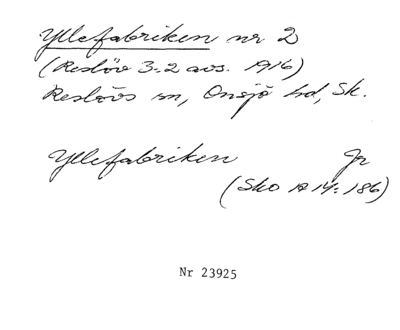 Yllefabriken nr 2
(Reslöv 3:2 avs. 1916)
Reslövs sn, Onsjö hd, Sk.
Yllefabriken Gr
(Sko A 14:186)
Nr 23925